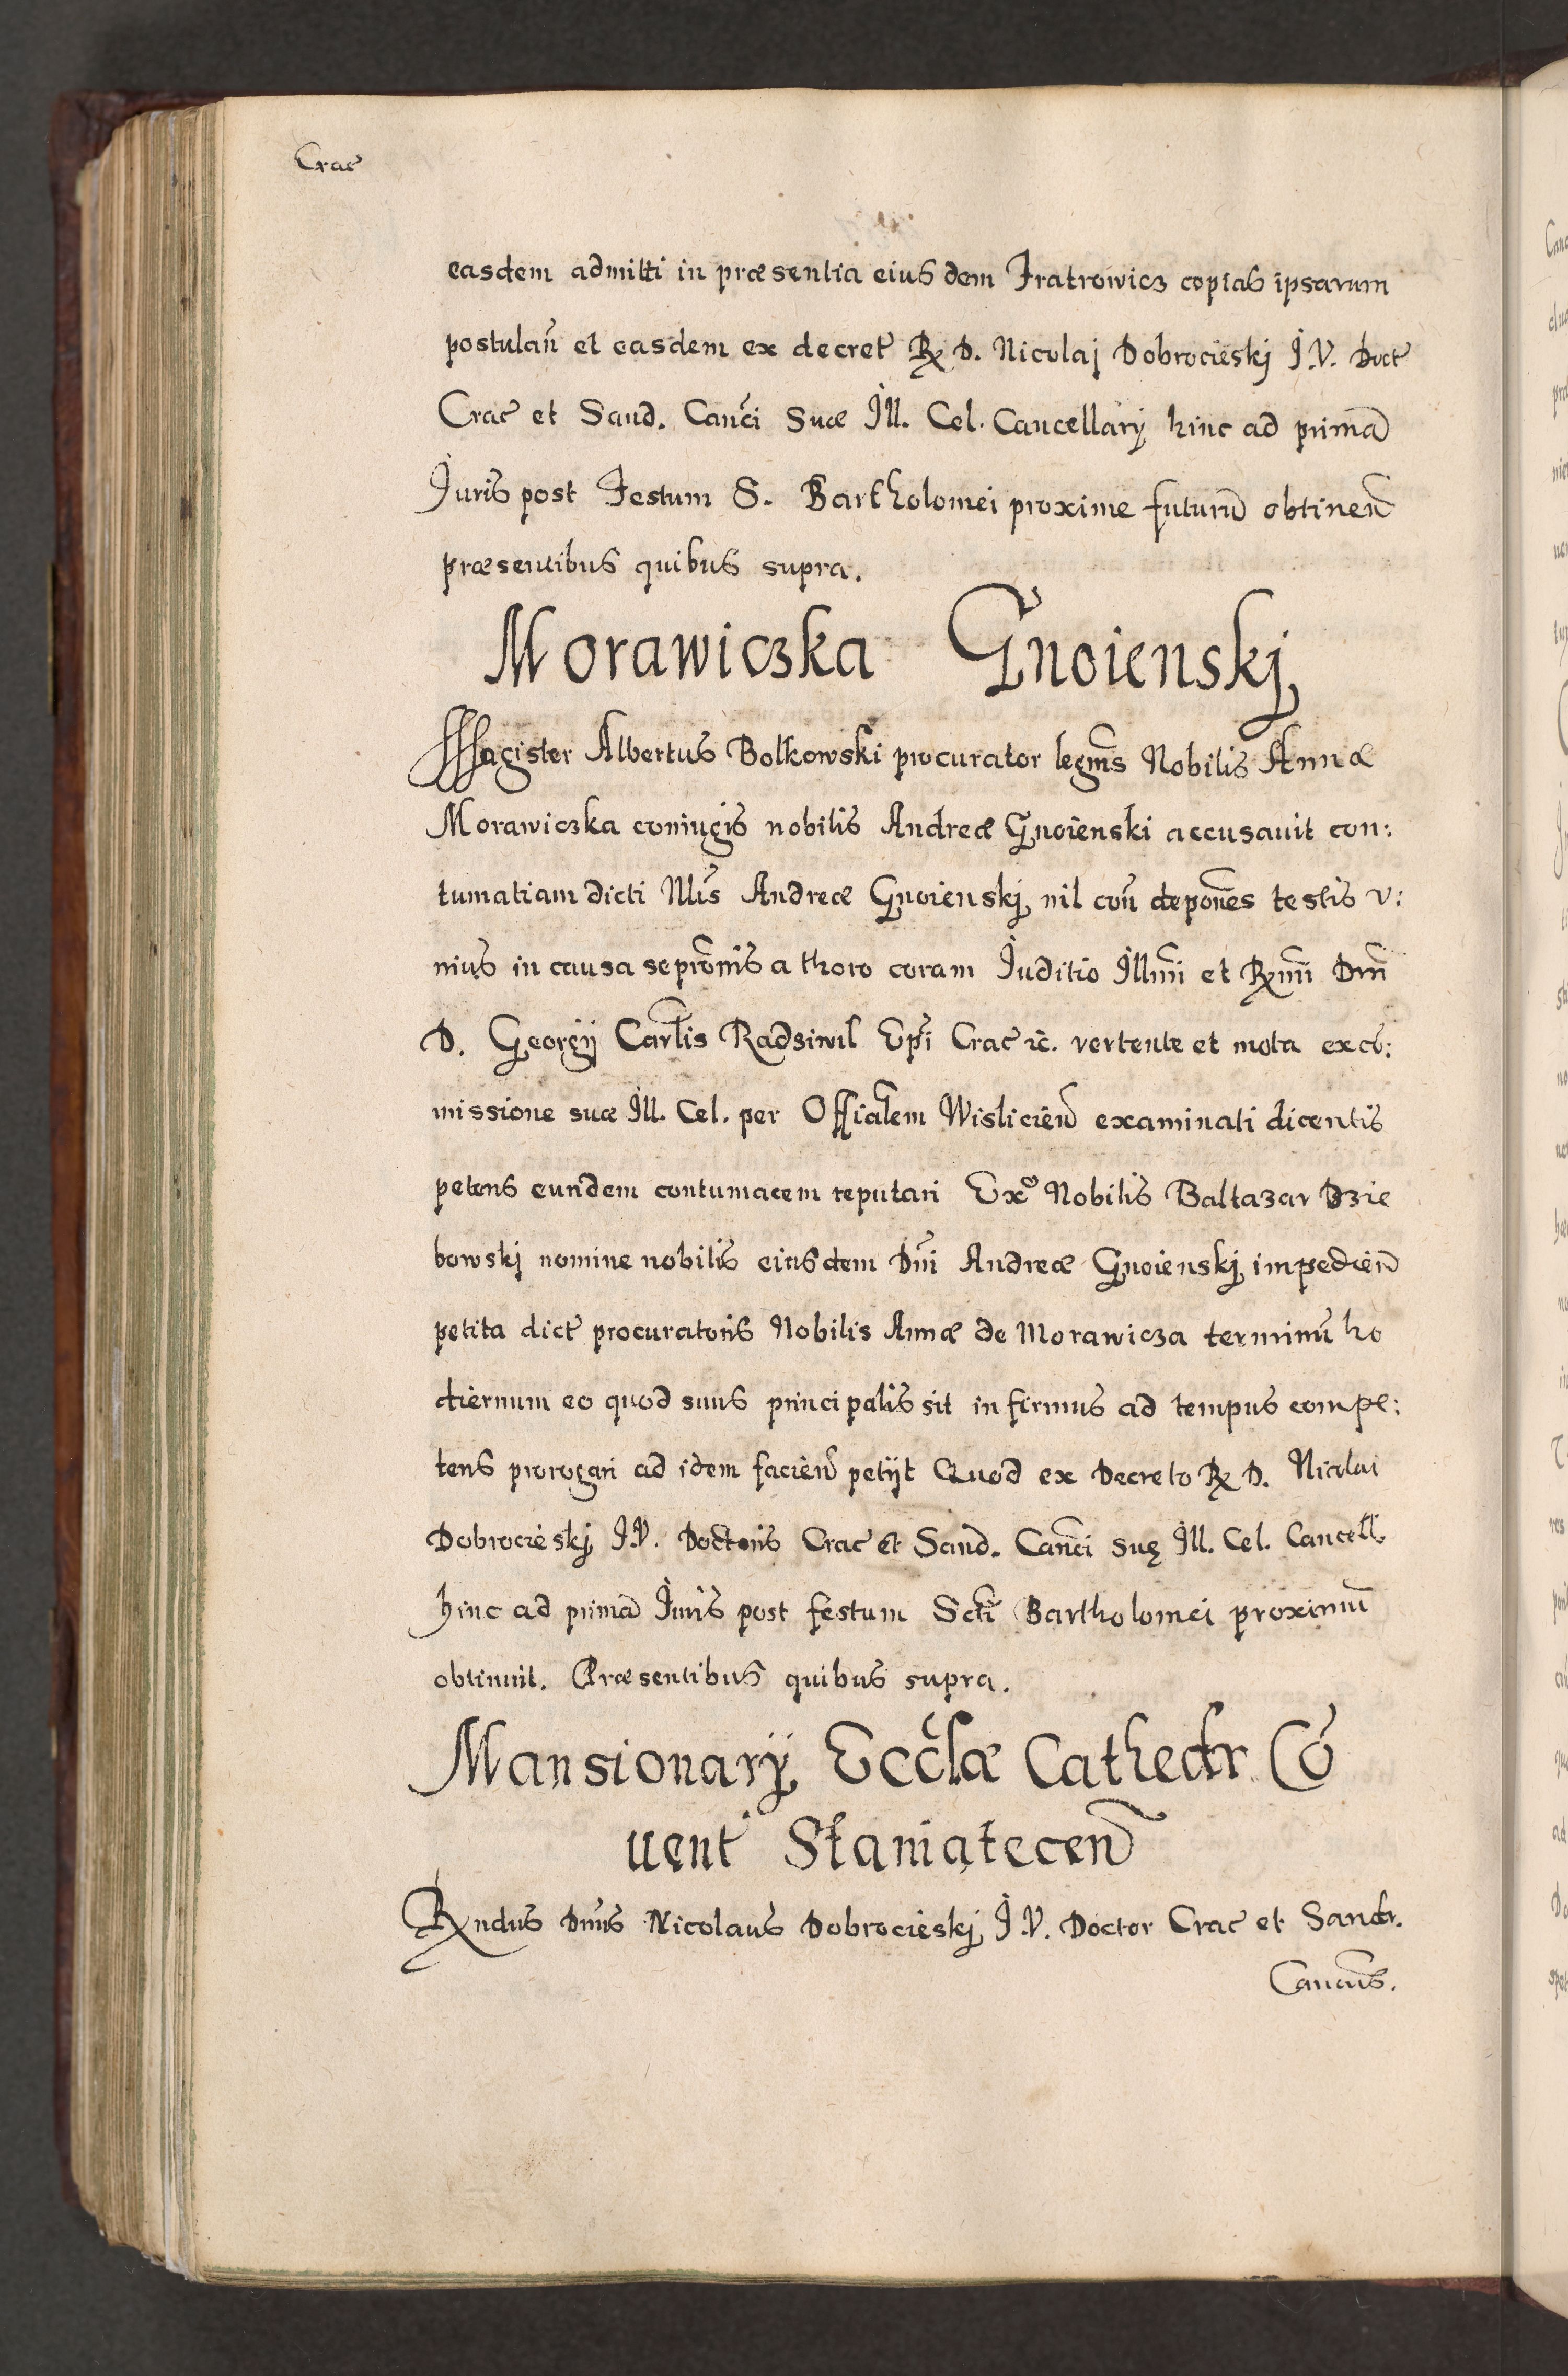 Crac̃
easdem admitti in præsentia eiusdem Fratrowicz copias ipsarum
postulañ et easdem ex decret̃ R. D. Nicolaj Dobrocieskj I.V. Doct̃
Crac̃ et Sand. Canci Suæ Ill. Cel. Cancellarÿ hinc ad primã
Iuris post Festum S. Bartholomei proxime futurũ obtineñ
præsentibus quibus supra.
Morawiczka Gnoienskj
Magister Albertus Bolkowski procurator legm̃s Nobilis Annæ
Morawiczka coniugis nobilis Andreæ Gnoienski accusauit con:
tumatiam dicti Nlis̃ Andreæ Gnoienskj nil coñ deponẽs testis v:
nius in causa seprõnis a thoro coram Iuditio Illm̃i et Rm̃i Dm̃
D. Georgÿ Carlis̃ Radsiwil Epĩ Crac̃ ꝛc. vertente et mota ex cõ:
missione suæ Ill. Cel. per Offialem̃ Wislicieñ examinati dicentis
petens eundem contumacem reputari Exº Nobilis Baltazar Dzie
bowskj nomine nobilis eiusdem Dñi Andreæ Gnoienskj impedieñ
petita dict̃ procuratoris Nobilis Annæ de Morawicza terminũ ho
diernum eo quod suus principalis sit infirmus ad tempus compe:
tens prorogari ad idem facieñ petÿt Quod ex Decreto R. D. Nicolai
Dobrocieskj I.V. Doctoris Crac̃ et Sand. Canci Suę Ill. Cel. Cancell.
hinc ad primã Iuris post festum Scti Bartholomei proximũ
obtinuit. Præsentibus quibus supra.
Mansionarÿ Ecclæ Cathedr. Cõ
uent̃ Staniąteceñ
Rndus Dnus Nicolaus Dobrocieskj I.V. Doctor Crac̃ et Sandr.
Cancus.